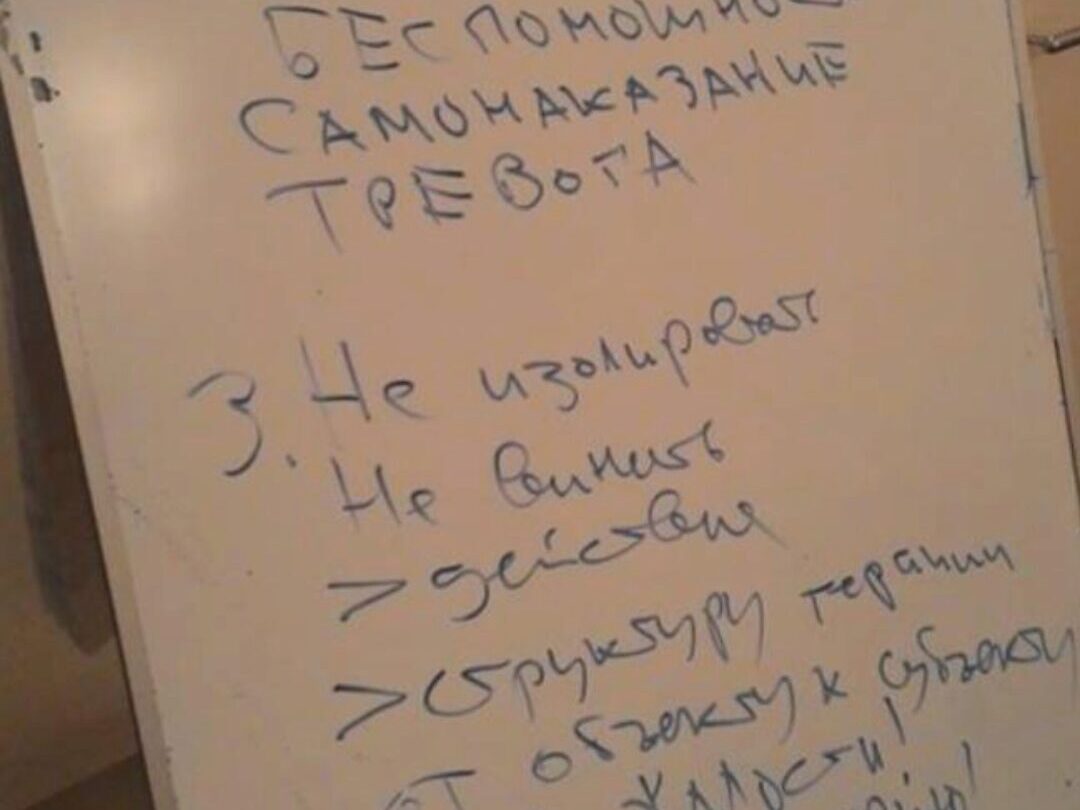 БЕСПОМОЩНОС
САМОНАКАЗАНИЕ
ТРЕВОГА
3. Не изолировать
Не винить
> действие
> структуру терапии
От объекту к субъекту
жалости!